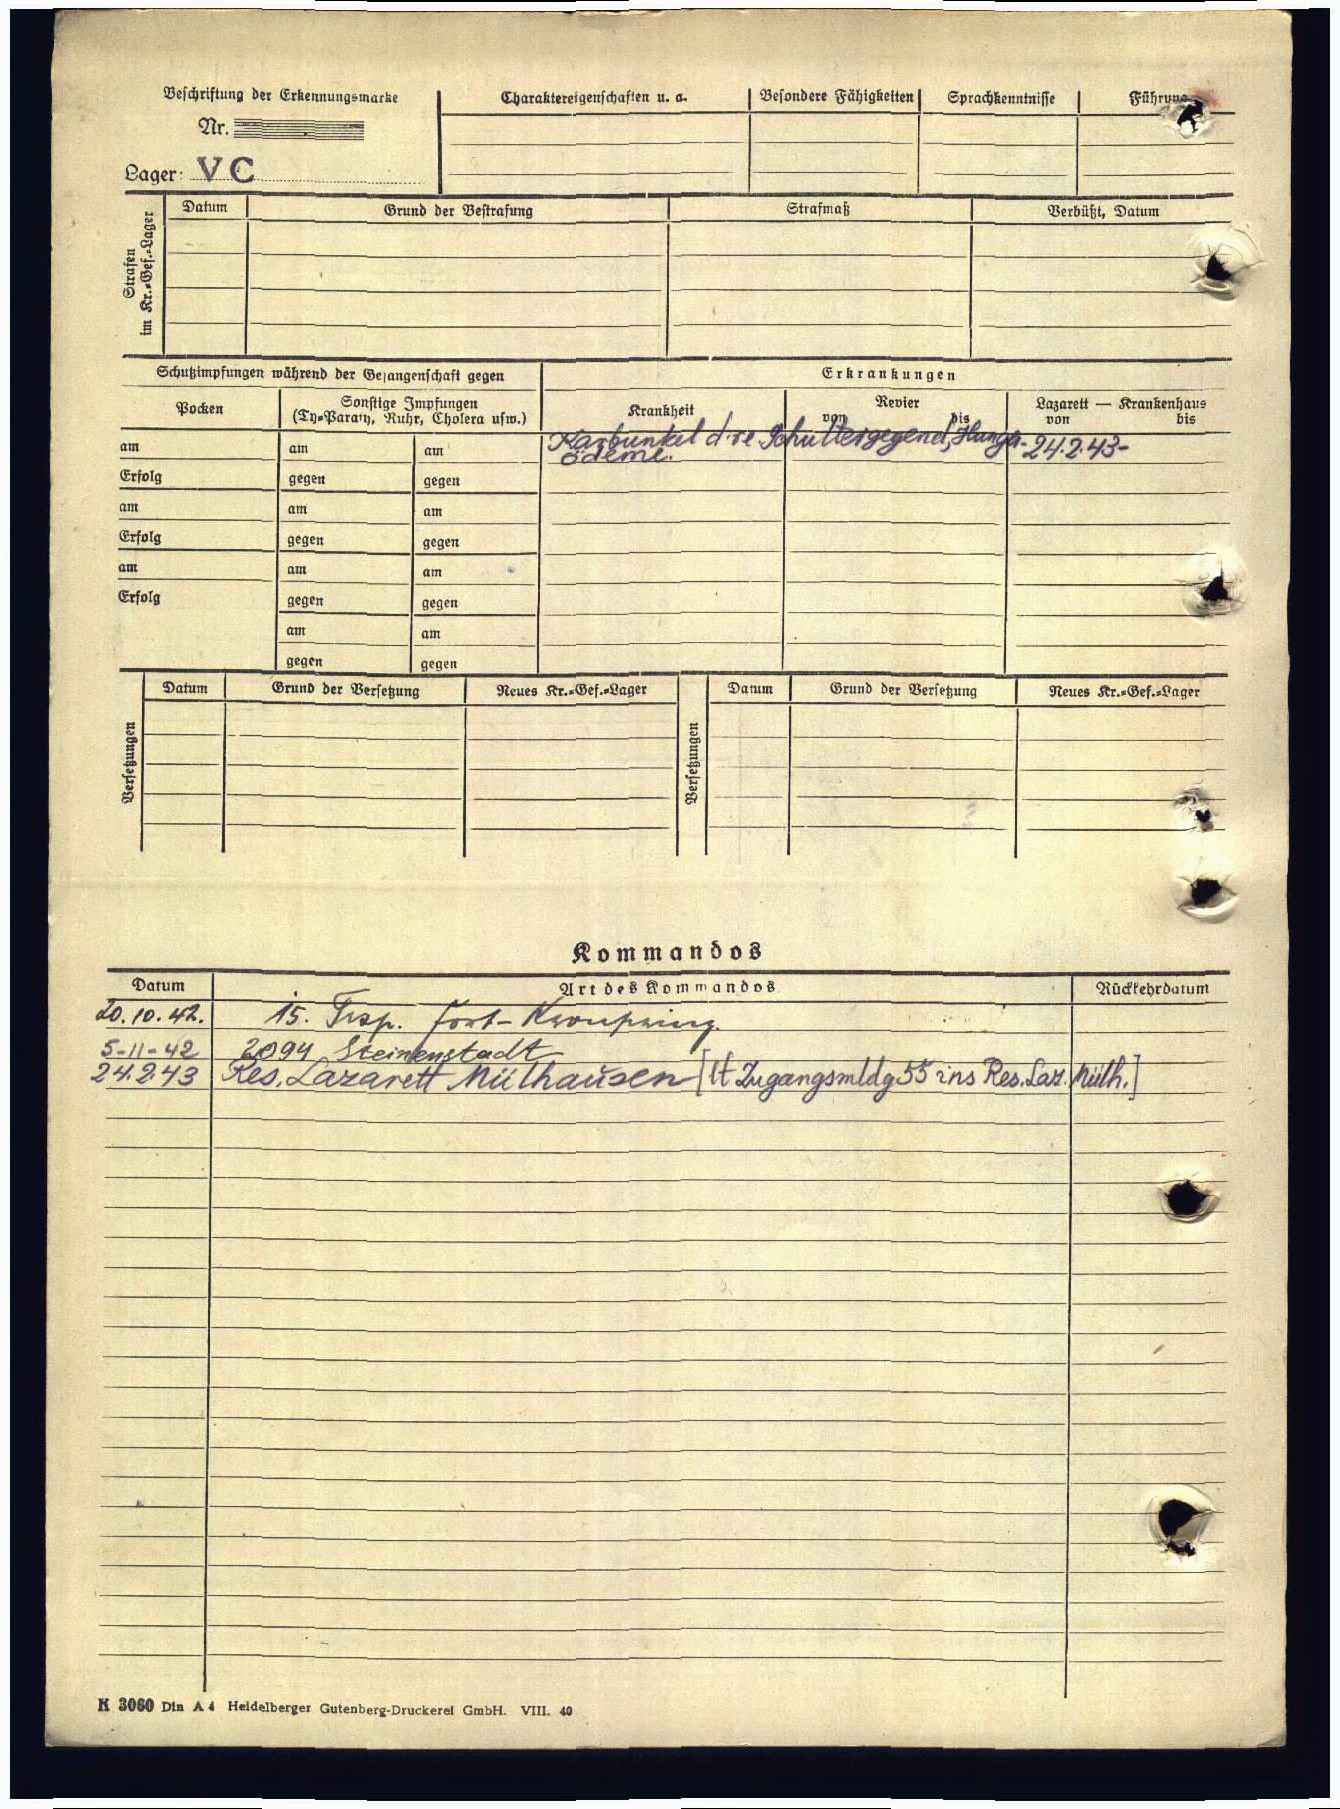 Beschriftung der Erkennungsmarke
Nr.
Lager: V C
Charaktereigenschaften u. a.
Besondere Fähigkeiten
Sprachkenntnisse
Führung
Strafen
im Kr.=Gef.=Lager
Datum
Grund der Bestrafung
Strafmaß
Verbüßt, Datum
Schutzimpfungen während der Gefangenschaft gegen
Erkrankungen
Pocken
Sonstige Impfungen
(Ty=Paraty, Ruhr, Cholera usw.)
Krankheit
Revier
von bis
Lazarett — Krankenhaus
von bis
Karbunkel d. re Schultergegend, Hunger- 24.2.43-
ödeme.
am am am
Erfolg gegen gegen
am am am
Erfolg gegen gegen
am am am
Erfolg gegen gegen
am am
gegen gegen
Versetzungen
Datum
Grund der Versetzung
Neues Kr.=Gef.=Lager
Versetzungen
Datum
Grund der Versetzung
Neues Kr.=Gef.=Lager
Kommandos
Datum
Art des Kommandos
Rückkehrdatum
20.10.42. 15. Trsp. Fort-Kronprinz.
5-11-42 2094 Steinenstadt
24.2.43 Res. Lazarett Mülhausen [lt Zugangsmldg 55 ins Res. Laz. Mülh.]
K 3060 Din A 4 Heidelberger Gutenberg-Druckerei GmbH. VIII. 40